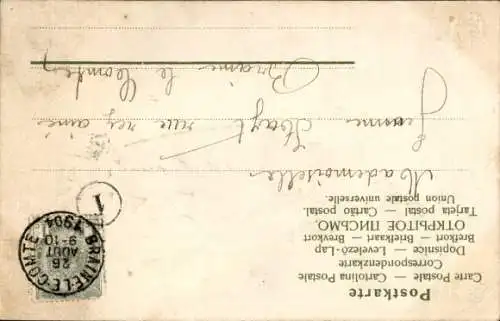 Postkarte
Carte Postale — Cartolina Postale
Correspondenzkarte
Dopisnice — Levelező-Lap
Brefkort — Briefkaart — Brevkort
ОТКРЫТОЕ ПИСЬМО.
Tarjeta postal — Cartão postal.
Union postale universelle.
BRAINE-LE-COMTE
26
AOUT
9-10
1904
1
Mademoiselle
Jeanne
rue
Braine le Comte